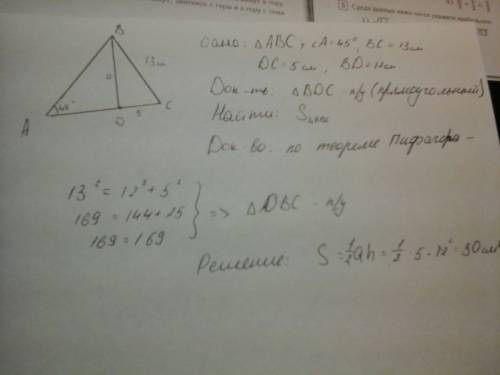 B
13см
A
45°
D
5
C
Дано: △ABC, ∠A=45°, BC=13см
DC=5см, BD=12см
Док-ть: △BDC-п/у (прямоугольный)
Найти:
Док-во: по теореме Пифагора-
13²=12²+5²
169=144+25
169=169
=> △DBC-п/у
Решение: S=½ah=½·5·12=30см²